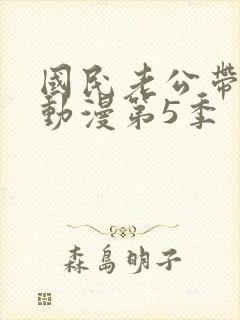 國民老公帶
動漫第5季
森島明子